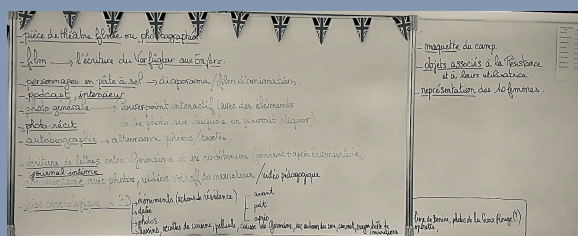 - pièce de théâtre filmée ou photographiée
- film → l'écriture du Verfügbar aux Enfers.
- personnages en pâte à sel → diaporama / film d'animation.
- podcast, interview
- photo générale → Powerpoint interactif (avec des éléments
de la photo sur lesquels on pourrait cliquer)
- photo-récit
- autobiographie → alternance photos / textes.
- écriture de lettres entre Germaine et
- journal intime
- documentaire avec photos, vidéos, voix off du narrateur / vidéo pédagogique
- frise chronologique en 3D
→ monuments (actions de résistance)
→ dates
→ photos
→ dessins, recettes de cuisine, pellicule, de Germaine,
avant
pdt
après
- maquette du camp
- objets associés à la Résistance
et à leurs utilisatrices.
- représentation des 10 femmes.
photos de la Croix Rouge (?)